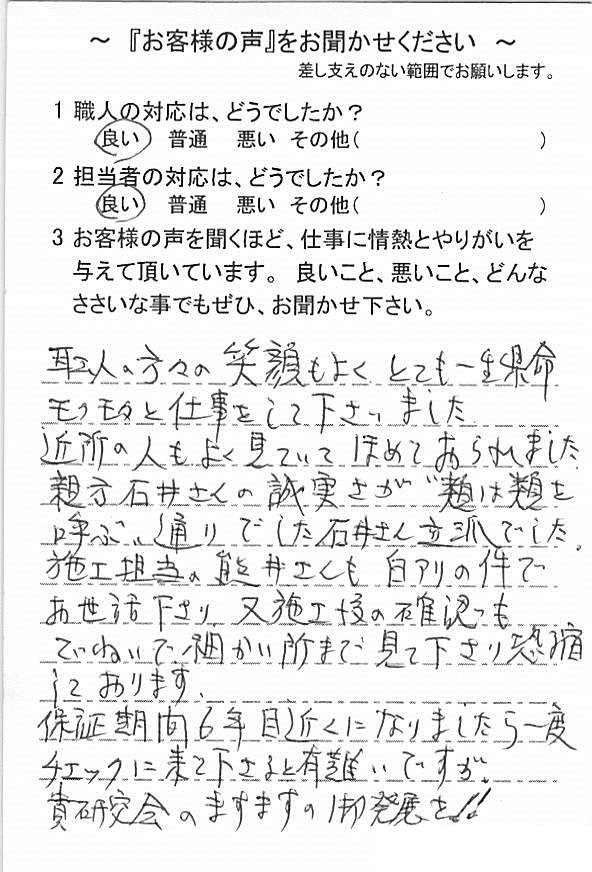 ～ 『お客様の声』をお聞かせください ～
差し支えのない範囲でお願いします。
1 職人の対応は、どうでしたか？
良い 普通 悪い その他( )
2 担当者の対応は、どうでしたか？
良い 普通 悪い その他( )
3 お客様の声を聞くほど、仕事に情熱とやりがいを
与えて頂いています。 良いこと、悪いこと、どんな
ささいな事でもぜひ、お聞かせ下さい。
職人の方々の笑顔もよく とても一生県命
モクモクと仕事をして下さいました
近所の人もよく見ていて ほめておられました。
親方石井さんの誠実さが〝類は類を
呼ぶ〟通りでした石井さん立派でした。
施工担当の熊井さんも 白アリの件で
お世話下さり、又施工後の確認も
ていねいで 細かい所まで見て下さり恐縮
しております。
保証期間6年目近くになりましたら一度
チェックに来て下さると有難いですが、
貴研究会のますますの御発展を!!